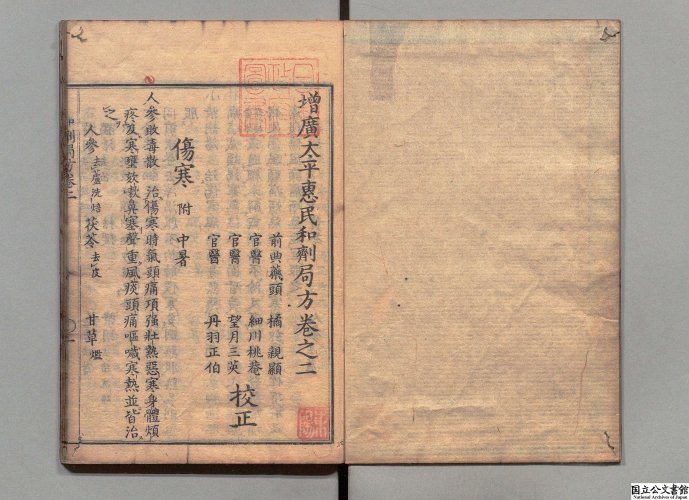 增廣太平惠民和劑局方卷之二
前典藥頭 橘 親顯
官醫 細川桃菴
官醫 望月三英
官醫 丹羽正伯
校正
傷寒 附 中暑
人參敗毒散治傷寒時氣頭痛項強壯熱惡寒身體煩
疼及寒壅欬嗽鼻塞聲重風痰頭痛嘔噦寒熱並皆治
之
人參去蘆洗焙 茯苓去皮 甘草爁
和劑局方卷二
一
国立公文書館
National Archives of Japan